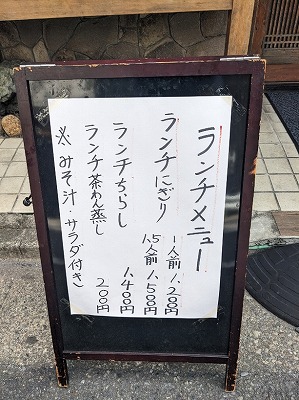 ランチメニュー
ランチにぎり 一人前 1,200円
1.5人前 1,500円
ランチちらし 1,400円
ランチ茶わん蒸し 200円
※みそ汁・サラダ付き